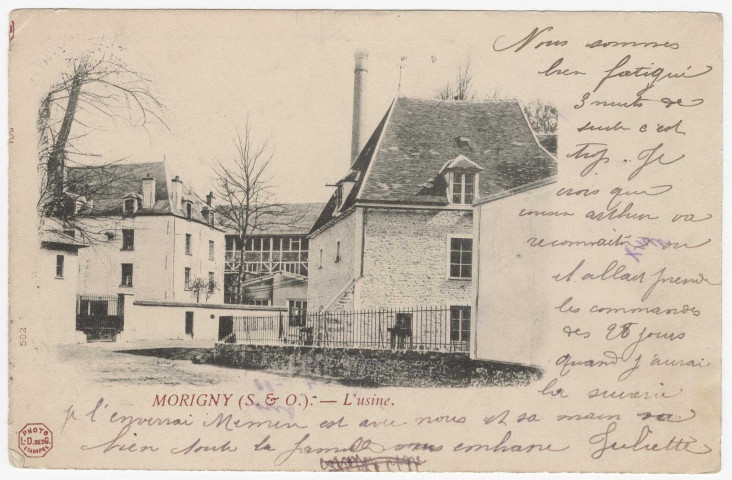 Nous sommes
bien fatigué
3 nuits de
suite c'est
trop. Je
crois que
cousin arthur va
reconnaitre ou
il allait prendre
les commandes
des 28 jours
quand j'aurai
la
je l'enverrai Memen est avec nous et sa main va
bien toute la famille vous embrasse Juliette
MORIGNY (S. & O.). — L'usine.
502
PHOTO
L. D. DES G.
ETAMPES